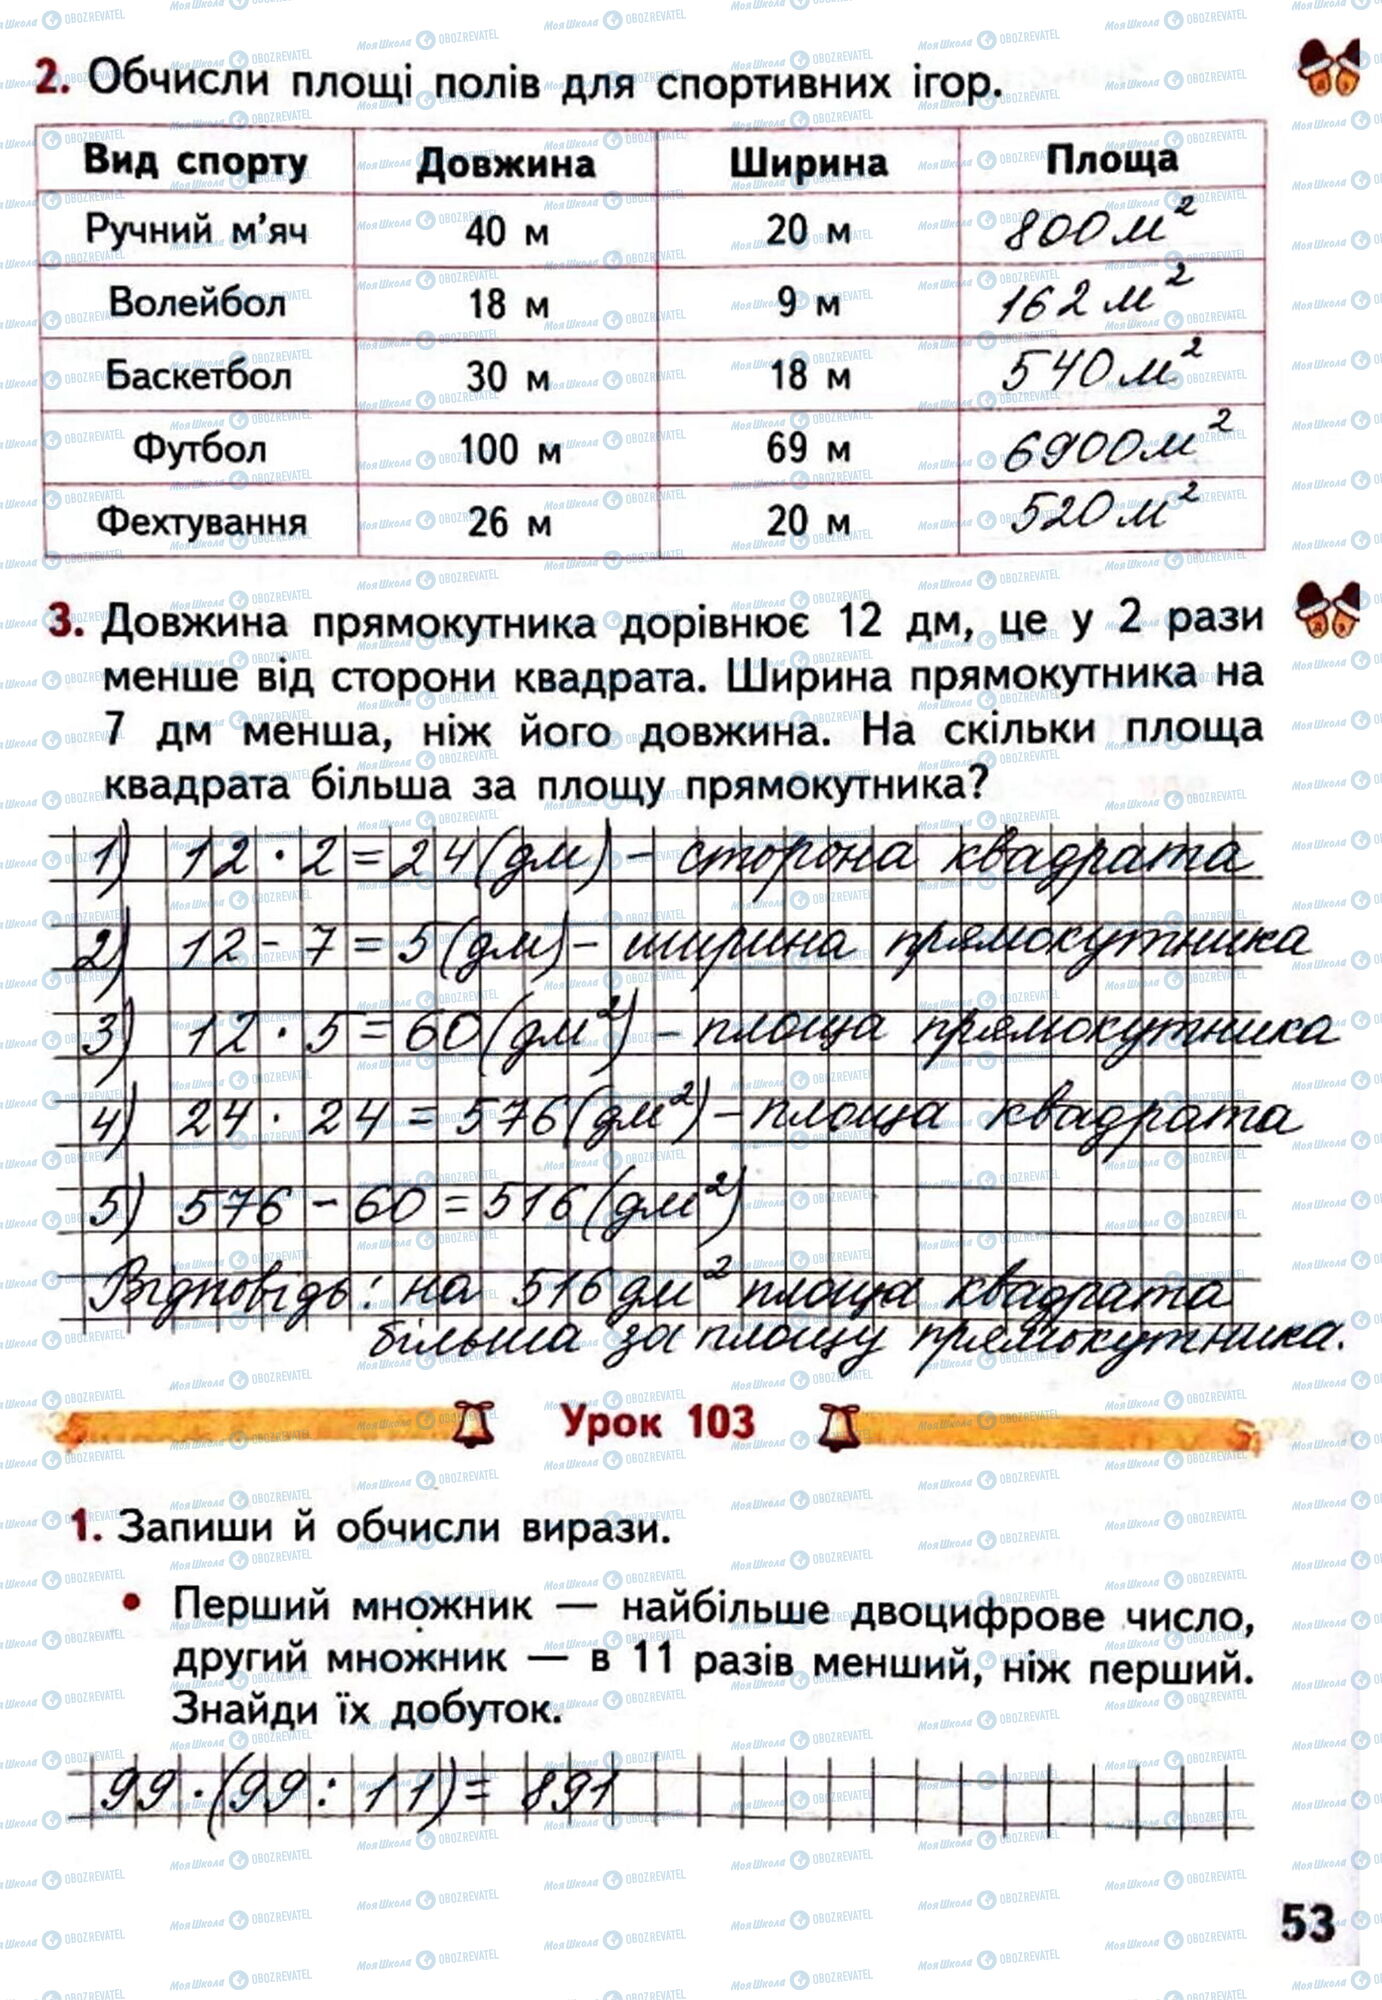 2. Обчисли площі полів для спортивних ігор.
Вид спорту Довжина Ширина Площа
Ручний м'яч 40 м 20 м 800 м²
Волейбол 18 м 9 м 162 м²
Баскетбол 30 м 18 м 540 м²
Футбол 100 м 69 м 6900 м²
Фехтування 26 м 20 м 520 м²
3. Довжина прямокутника дорівнює 12 дм, це у 2 рази
менше від сторони квадрата. Ширина прямокутника на
7 дм менша, ніж його довжина. На скільки площа
квадрата більша за площу прямокутника?
1) 12 · 2 = 24 (дм) – сторона квадрата
2) 12 – 7 = 5 (дм) – ширина прямокутника
3) 12 · 5 = 60 (дм²) – площа прямокутника
4) 24 · 24 = 576 (дм²) – площа квадрата
5) 576 – 60 = 516 (дм²)
Відповідь: на 516 дм² площа квадрата
більша за площу прямокутника.
Урок 103
1. Запиши й обчисли вирази.
• Перший множник — найбільше двоцифрове число,
другий множник — в 11 разів менший, ніж перший.
Знайди їх добуток.
99 · (99 : 11) = 891
53
МояШкола OBOZREVATEL